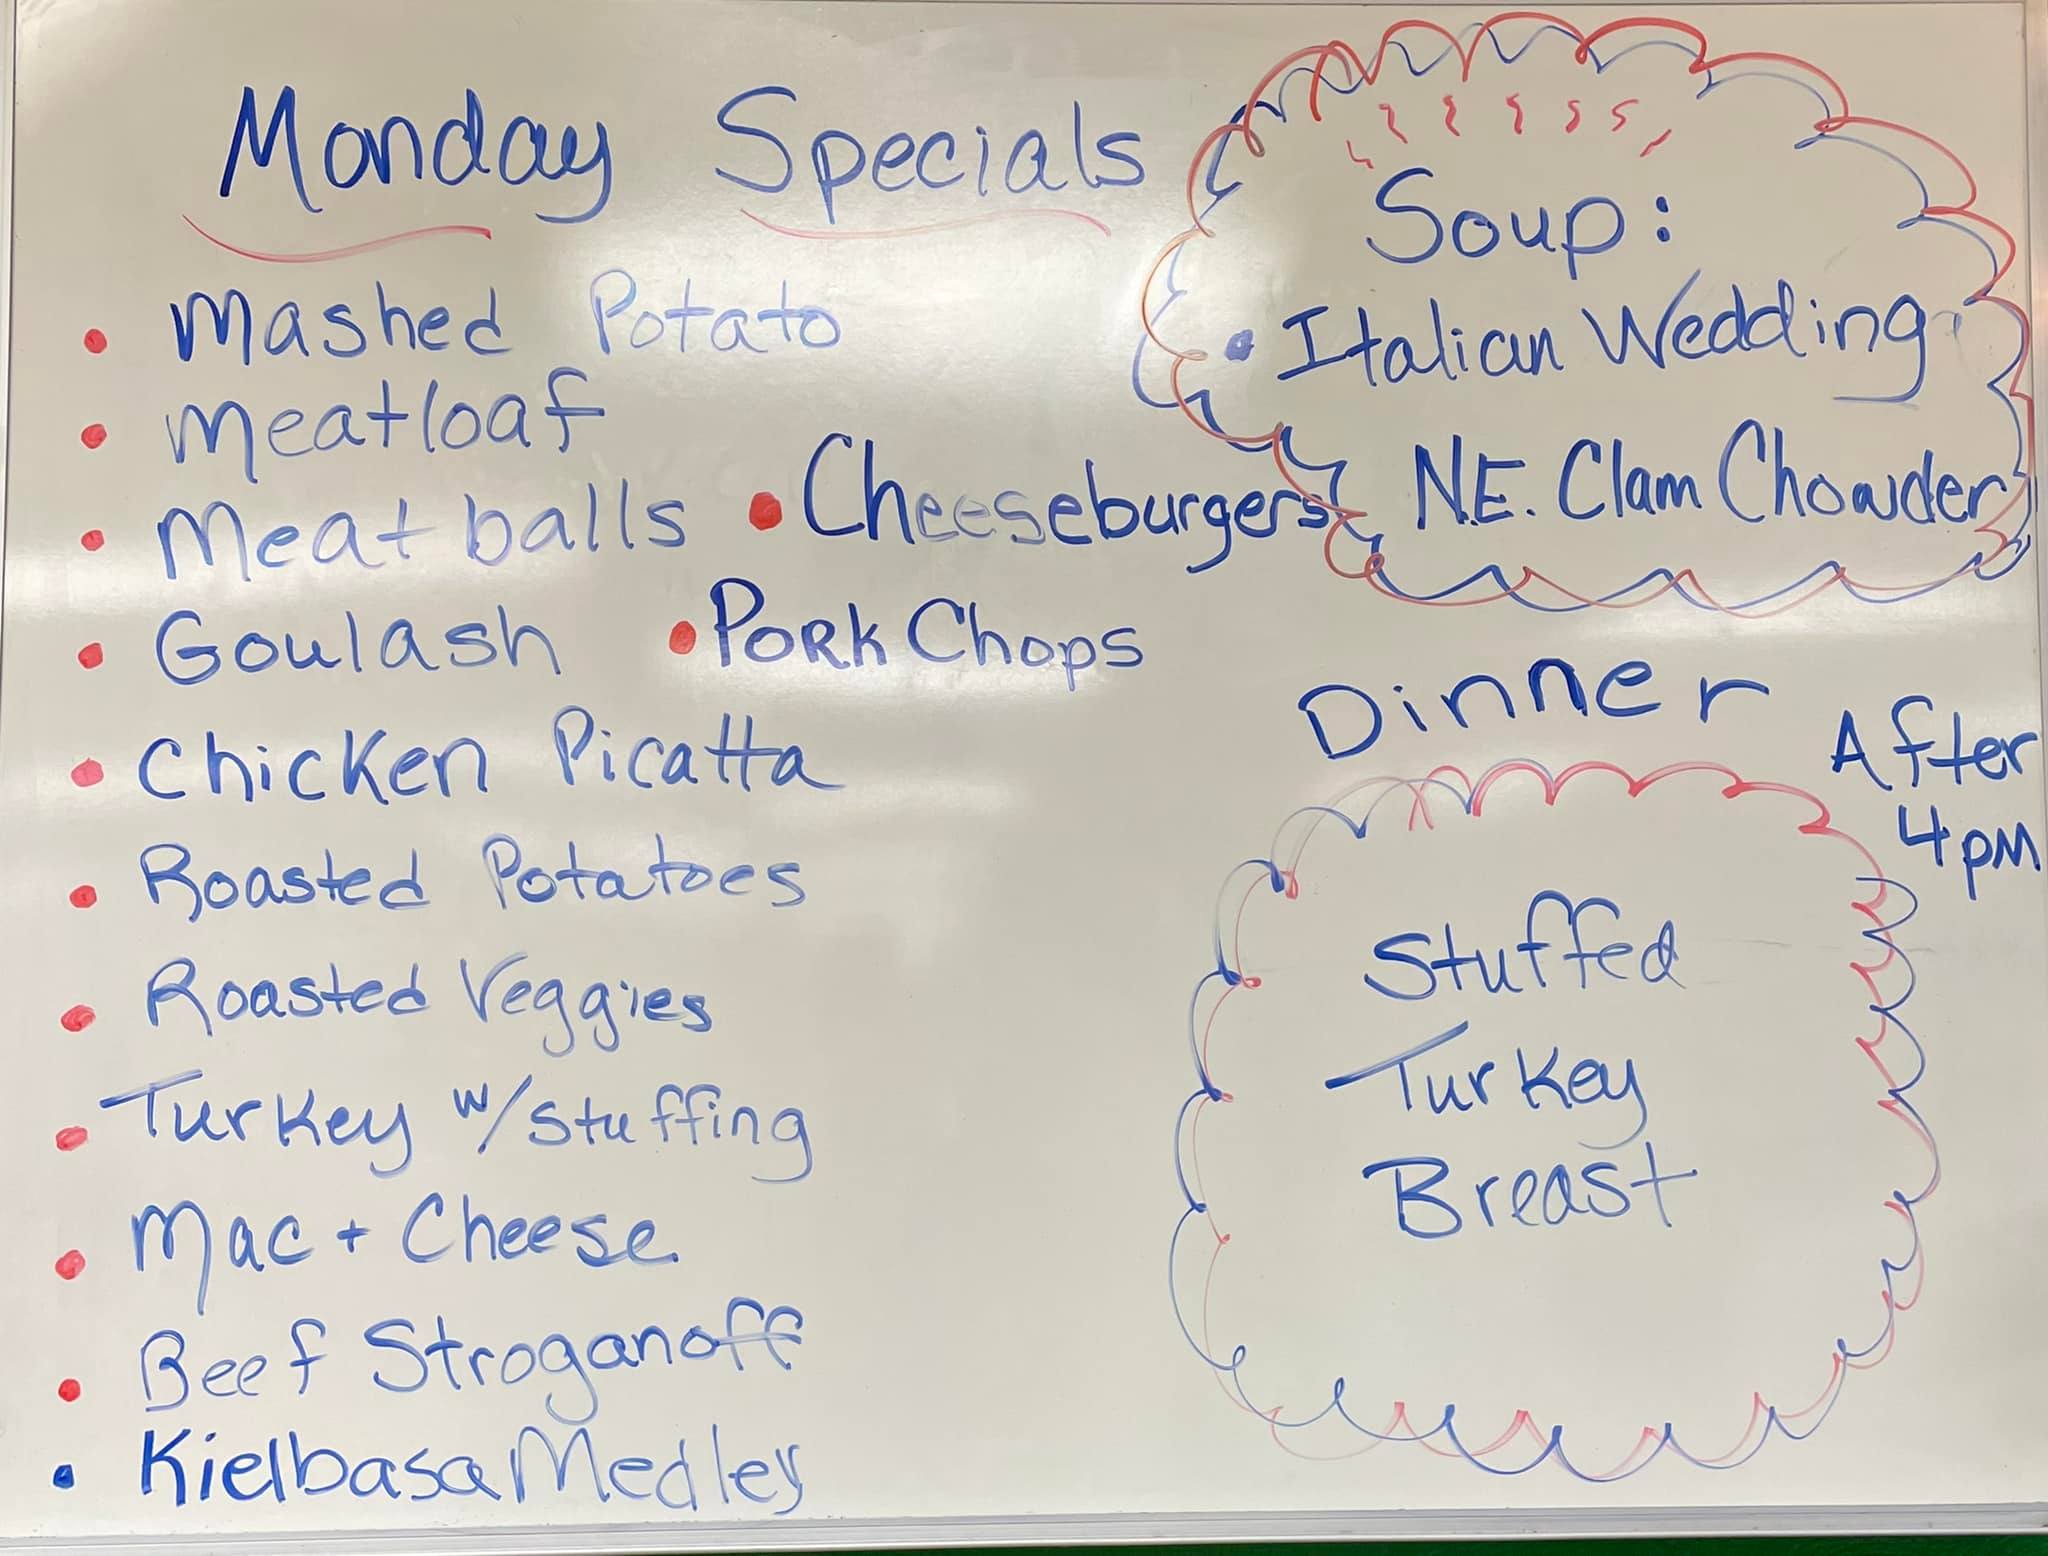 Monday Specials
• Mashed Potato
• Meatloaf
• Meatballs
• Goulash
• Chicken Picatta
• Roasted Potatoes
• Roasted Veggies
• Turkey w/stuffing
• Mac + Cheese
• Beef Stroganoff
• Kielbasa Medley
• Cheeseburgers
• Pork Chops
Soup:
• Italian Wedding
N.E. Clam Chowder
Dinner
After
4pm
Stuffed
Turkey
Breast